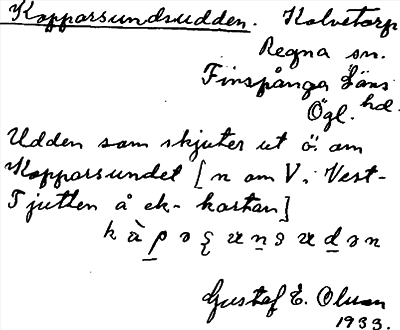 Kopparsundsudden. Kolvetorp
Regna sn.
Finspånga läns
hd.
Ögl.
Udden som skjuter ut ö. om
Kopparsundet [n om V. Vest-
Tjutten å ek-kartan]
Gustaf E. Olsson
1933.